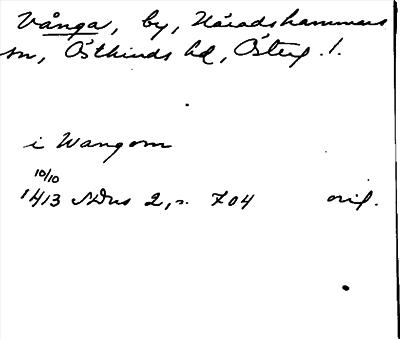 Vånga, by, Häradshammars
sn, Östkinds hd, Östergl.
i Wangom
10/10
1413 SDns 2, s. 704 orig.